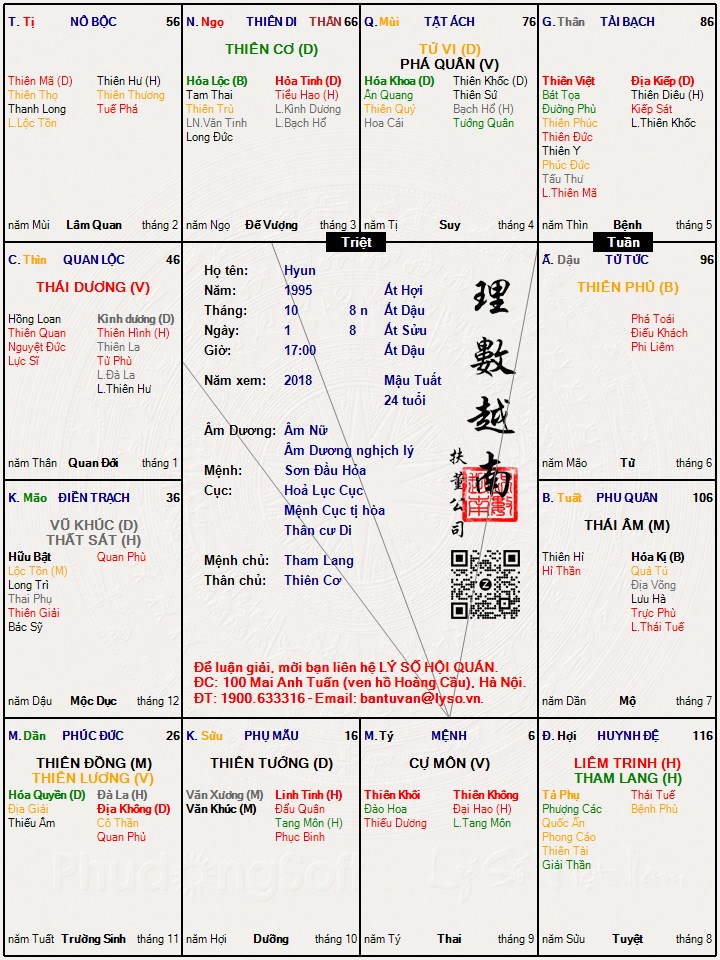 T. Tị NÔ BỘC 56
Thiên Mã (D) Thiên Hư (H)
Thiên Thọ Thiên Thương
Thanh Long Tuế Phá
L.Lộc Tồn
năm Mùi Lâm Quan tháng 2
N. Ngọ THIÊN DI THÂN 66
THIÊN CƠ (D)
Hóa Lộc (B) Hỏa Tinh (D)
Tam Thai Tiểu Hao (H)
Thiên Trù L.Kình Dương
LN.Văn Tinh L.Bạch Hổ
Long Đức
năm Ngọ Đế Vượng tháng 3
Q. Mùi TẬT ÁCH 76
TỬ VI (D)
PHÁ QUÂN (V)
Hóa Khoa (D) Thiên Khốc (D)
Ân Quang Thiên Sứ
Thiên Quý Bạch Hổ (H)
Hoa Cái Tướng Quân
năm Tị Suy tháng 4
G. Thân TÀI BẠCH 86
Thiên Việt Địa Kiếp (D)
Bát Tọa Thiên Diêu (H)
Đường Phù Kiếp Sát
Thiên Phúc L.Thiên Khốc
Thiên Đức
Thiên Y
Phúc Đức
Tấu Thư
L.Thiên Mã
năm Thìn Bệnh tháng 5
Triệt
Tuần
C. Thìn QUAN LỘC 46
THÁI DƯƠNG (V)
Hồng Loan Kình dương (D)
Thiên Quan Thiên Hình (H)
Nguyệt Đức Thiên La
Lực Sĩ Tử Phù
L.Đà La
L.Thiên Hư
năm Thân Quan Đới tháng 1
Họ tên: Hyun
Năm: 1995 Ất Hợi
Tháng: 10 8 n Ất Dậu
Ngày: 1 8 Ất Sửu
Giờ: 17:00 Ất Dậu
Năm xem: 2018 Mậu Tuất
24 tuổi
Âm Dương: Âm Nữ
Âm Dương nghịch lý
Mệnh: Sơn Đầu Hỏa
Cục: Hoả Lục Cục
Mệnh Cục tị hòa
Thân cư Di
Mệnh chủ: Tham Lang
Thân chủ: Thiên Cơ
理數越南
扶董公司
Để luận giải, mời bạn liên hệ LÝ SỐ HỘI QUÁN.
ĐC: 100 Mai Anh Tuấn (ven hồ Hoàng Cầu), Hà Nội.
ĐT: 1900.633316 - Email: bantuvan@lyso.vn.
Ấ. Dậu TỬ TỨC 96
THIÊN PHỦ (B)
Phá Toái
Điếu Khách
Phi Liêm
năm Mão Tử tháng 6
K. Mão ĐIỀN TRẠCH 36
VŨ KHÚC (D)
THẤT SÁT (H)
Hữu Bật Quan Phù
Lộc Tồn (M)
Long Trì
Thai Phụ
Thiên Giải
Bác Sỹ
năm Dậu Mộc Dục tháng 12
B. Tuất PHU QUÂN 106
THÁI ÂM (M)
Thiên Hỉ Hóa Kị (B)
Hỉ Thần Quả Tú
Địa Võng
Lưu Hà
Trực Phù
L.Thái Tuế
năm Dần Mộ tháng 7
M. Dần PHÚC ĐỨC 26
THIÊN ĐỒNG (M)
THIÊN LƯƠNG (V)
Hóa Quyền (D) Đà La (H)
Địa Giải Địa Không (D)
Thiếu Âm Cô Thần
Quan Phủ
năm Tuất Trường Sinh tháng 11
K. Sửu PHỤ MẪU 16
THIÊN TƯỚNG (D)
Văn Xương (M) Linh Tinh (H)
Văn Khúc (M) Đẩu Quân
Tang Môn (H)
Phục Binh
năm Hợi Dưỡng tháng 10
M. Tý MỆNH 6
CỰ MÔN (V)
Thiên Khôi Thiên Không
Đào Hoa Đại Hao (H)
Thiếu Dương L.Tang Môn
năm Tý Thai tháng 9
Đ. Hợi HUYNH ĐỆ 116
LIÊM TRINH (H)
THAM LANG (H)
Tả Phụ Thái Tuế
Phượng Các Bệnh Phù
Quốc Ấn
Phong Cáo
Thiên Tài
Giải Thần
năm Sửu Tuyệt tháng 8